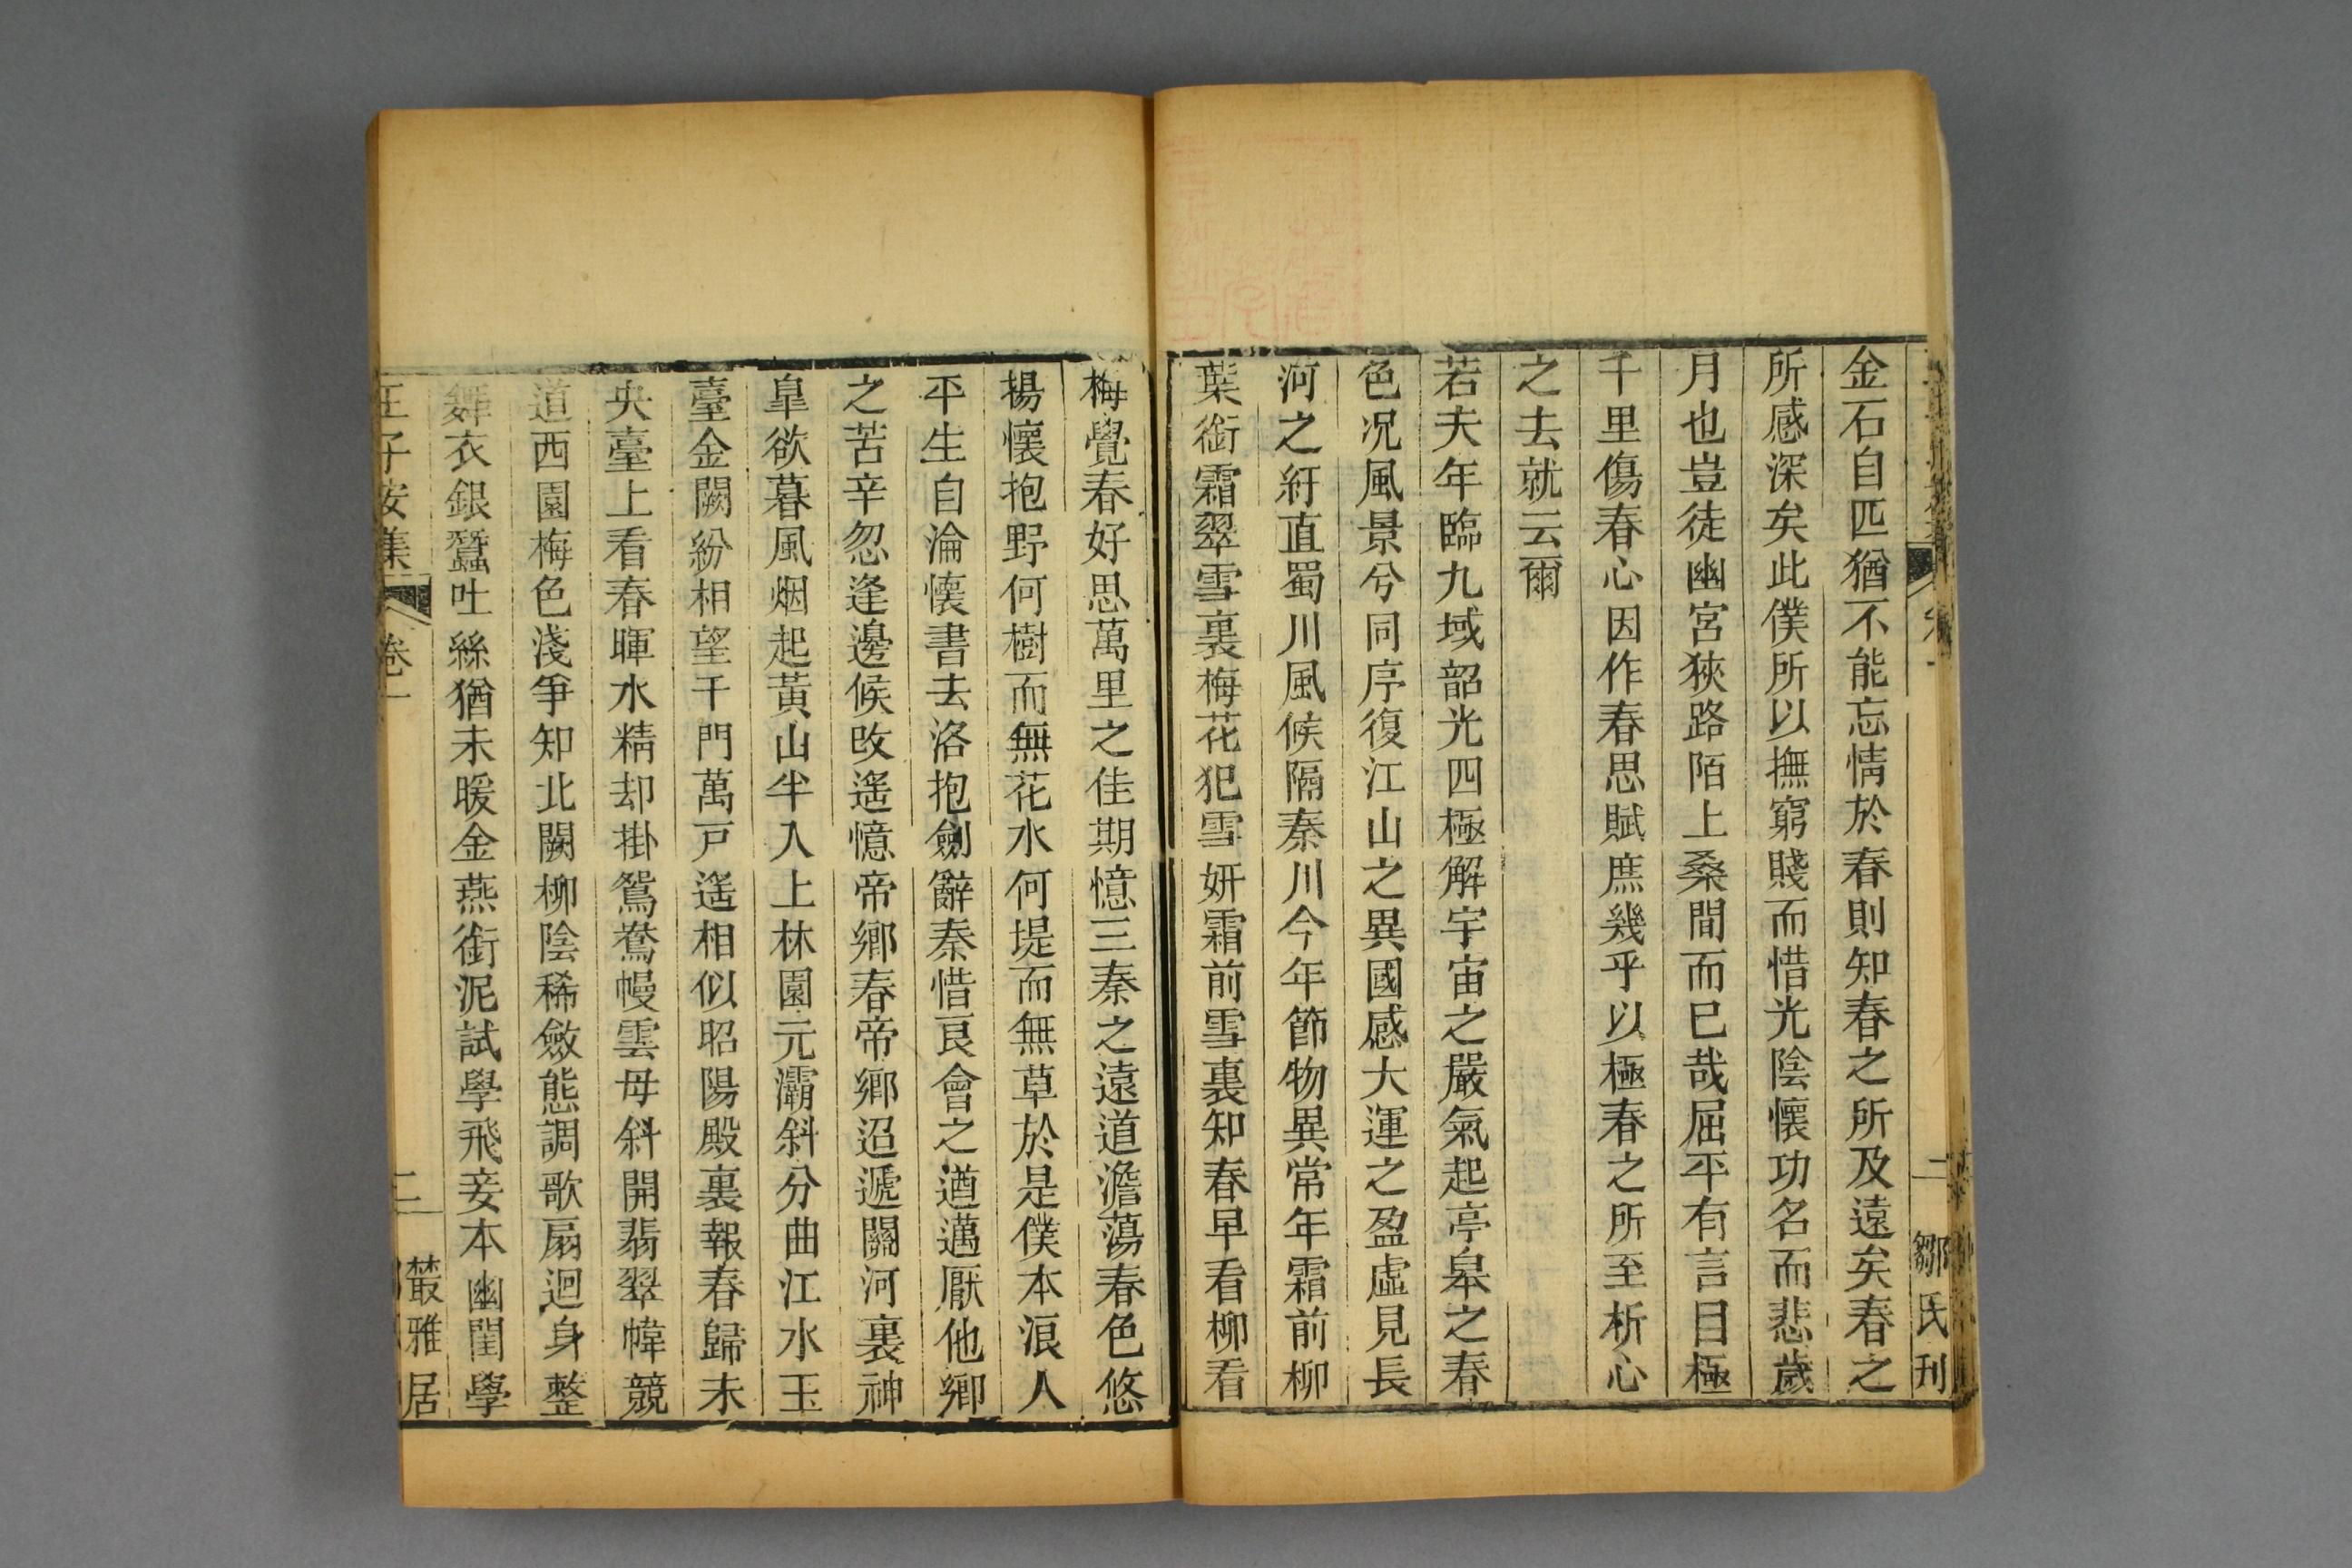 金石自匹猶不能忘情於春則知春之所及遠矣春之
所感深矣此僕所以撫窮賤而惜光陰懷功名而悲歲
月也豈徒幽宮狹路陌上桑間而已哉屈平有言目極
千里傷春心因作春思賦庶幾乎以極春之所至析心
之去就云爾
若夫年臨九域韶光四極解宇宙之嚴氣起亭皋之春
色況風景兮同序復江山之異國感大運之盈虛見長
河之紆直蜀川風候隔秦川今年節物異常年霜前柳
葉銜霜翠雪裏梅花犯雪妍霜前雪裏知春早看柳看
梅覺春好思萬里之佳期憶三秦之遠道澹蕩春色悠
揚懷抱野何樹而無花水何堤而無草於是僕本浪人
平生自淪懷書去洛抱劍辭秦惜良會之遒邁厭他鄉
之苦辛忽逢邊候改遙憶帝鄉春帝鄉迢遞關河裏神
皐欲暮風烟起黃山半入上林園元灞斜分曲江水玉
臺金闕紛相望千門萬戸遙相似昭陽殿裏報春歸未
央臺上看春暉水精却掛鴛鴦幔雲母斜開翡翠幃競
道西園梅色淺爭知北闕柳陰稀斂態調歌扇迴身整
舞衣銀蠶吐絲猶未暖金燕銜泥試學飛妾本幽閨學
王子安集 卷一 二 叢雅居
二 鄒氏刊